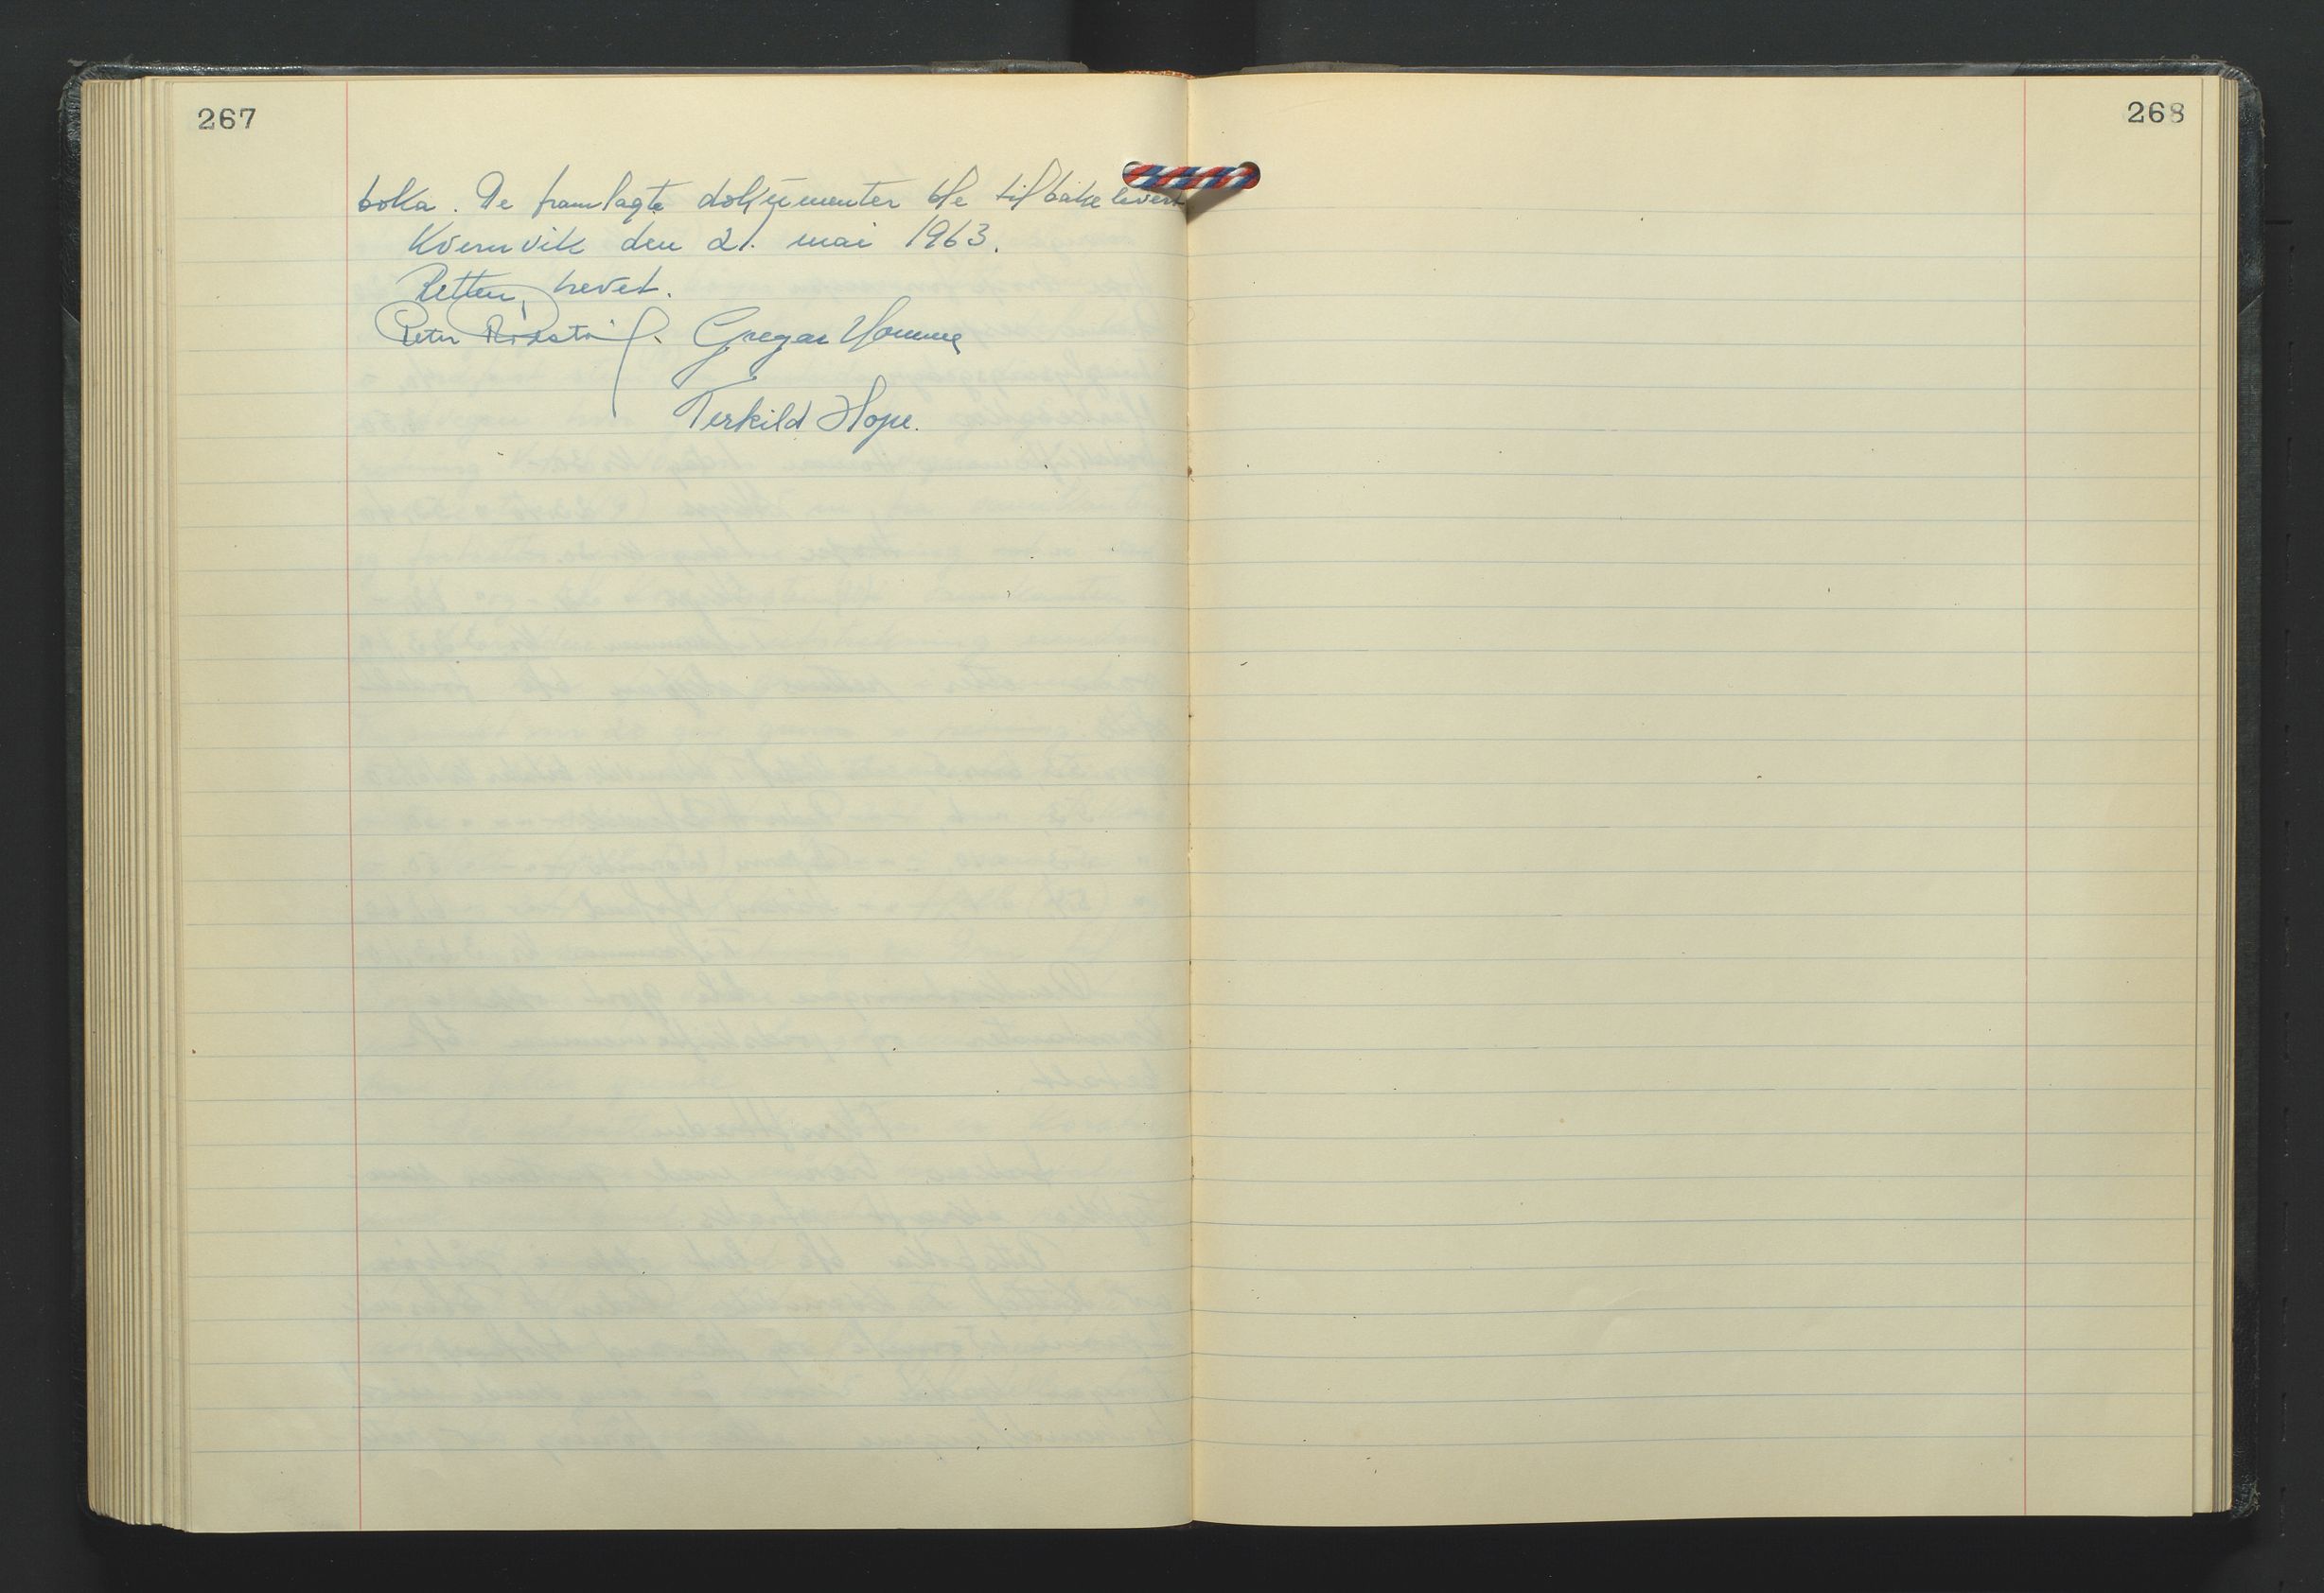 267
268
boka. De framlagte dokumenter ble tilbakelevert
Kvernvik den 21. mai 1963.
Retten hevet.
Peter Gregar Homme
Terkild Hope.